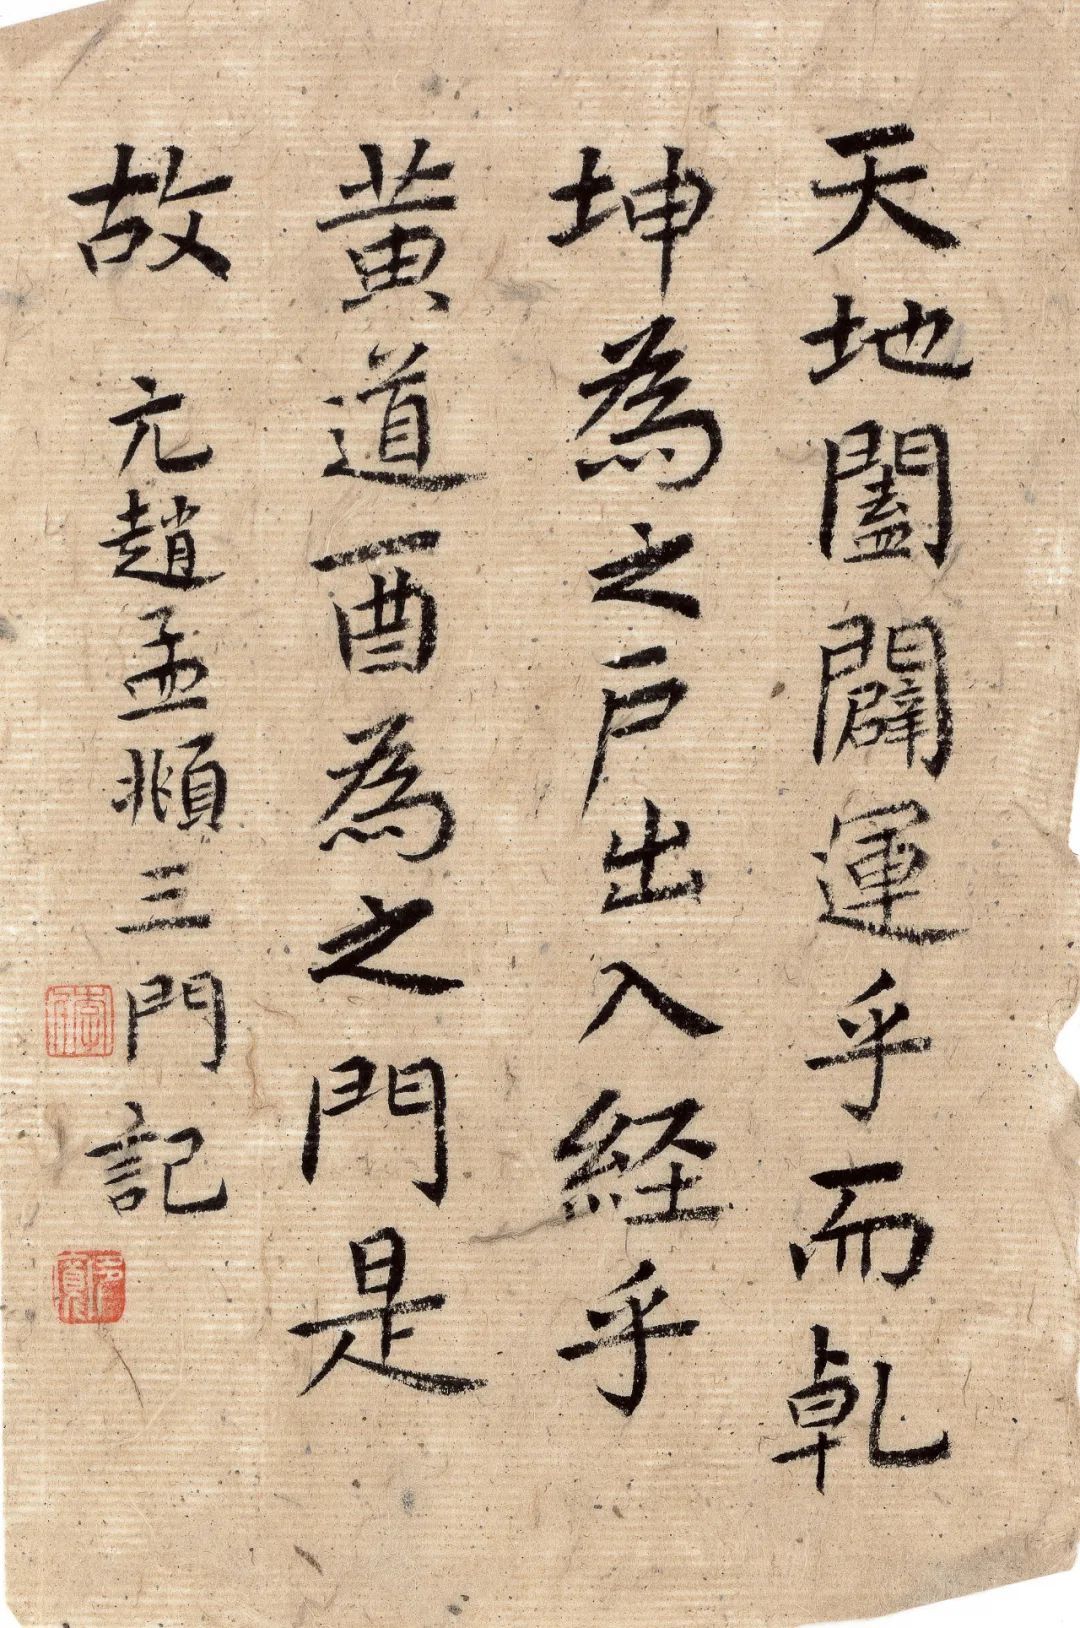 天地闔闢運乎而乹
坤為之戸出入経乎
黄道酉為之門是
故 元趙孟頫三門記